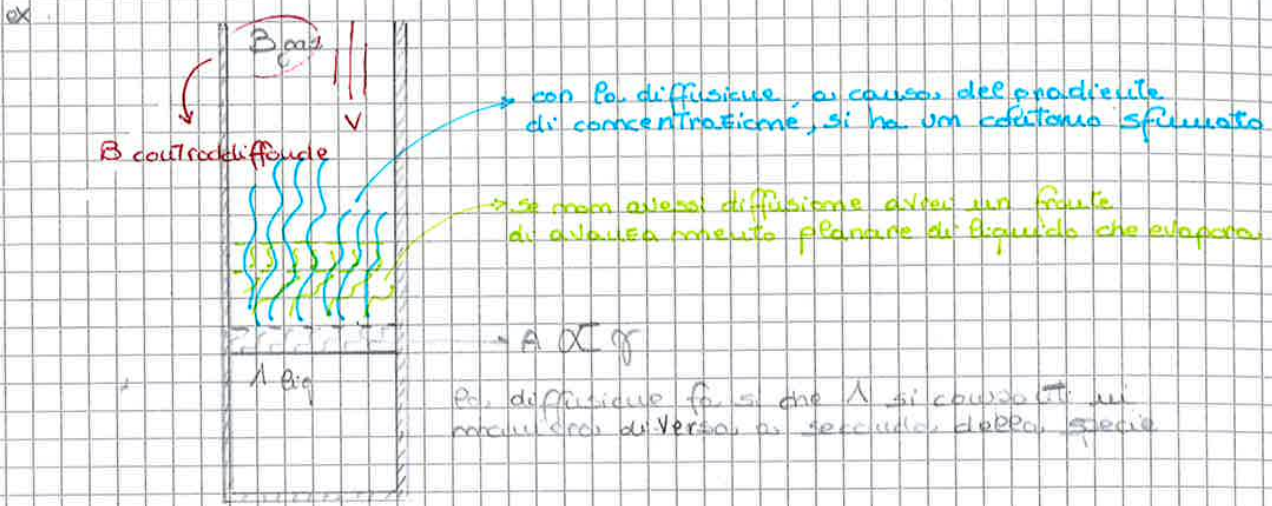 ex
B gas
V
B controddiffonde
con la diffusione, a causa del gradiente
di concentrazione, si ha un contorno sfumato
se non avessi diffusione avrei un fronte
di avanzamento planare di liquido che evapora
A
A liq
la diffusione fa si che A si comporti in
maniera diversa a seconda della specie